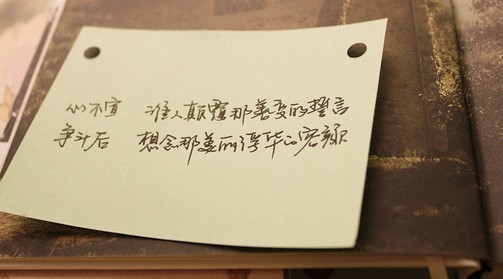 心不宜 谁人颠覆那善变的誓言
争斗后 想念那美丽得毕的容颜